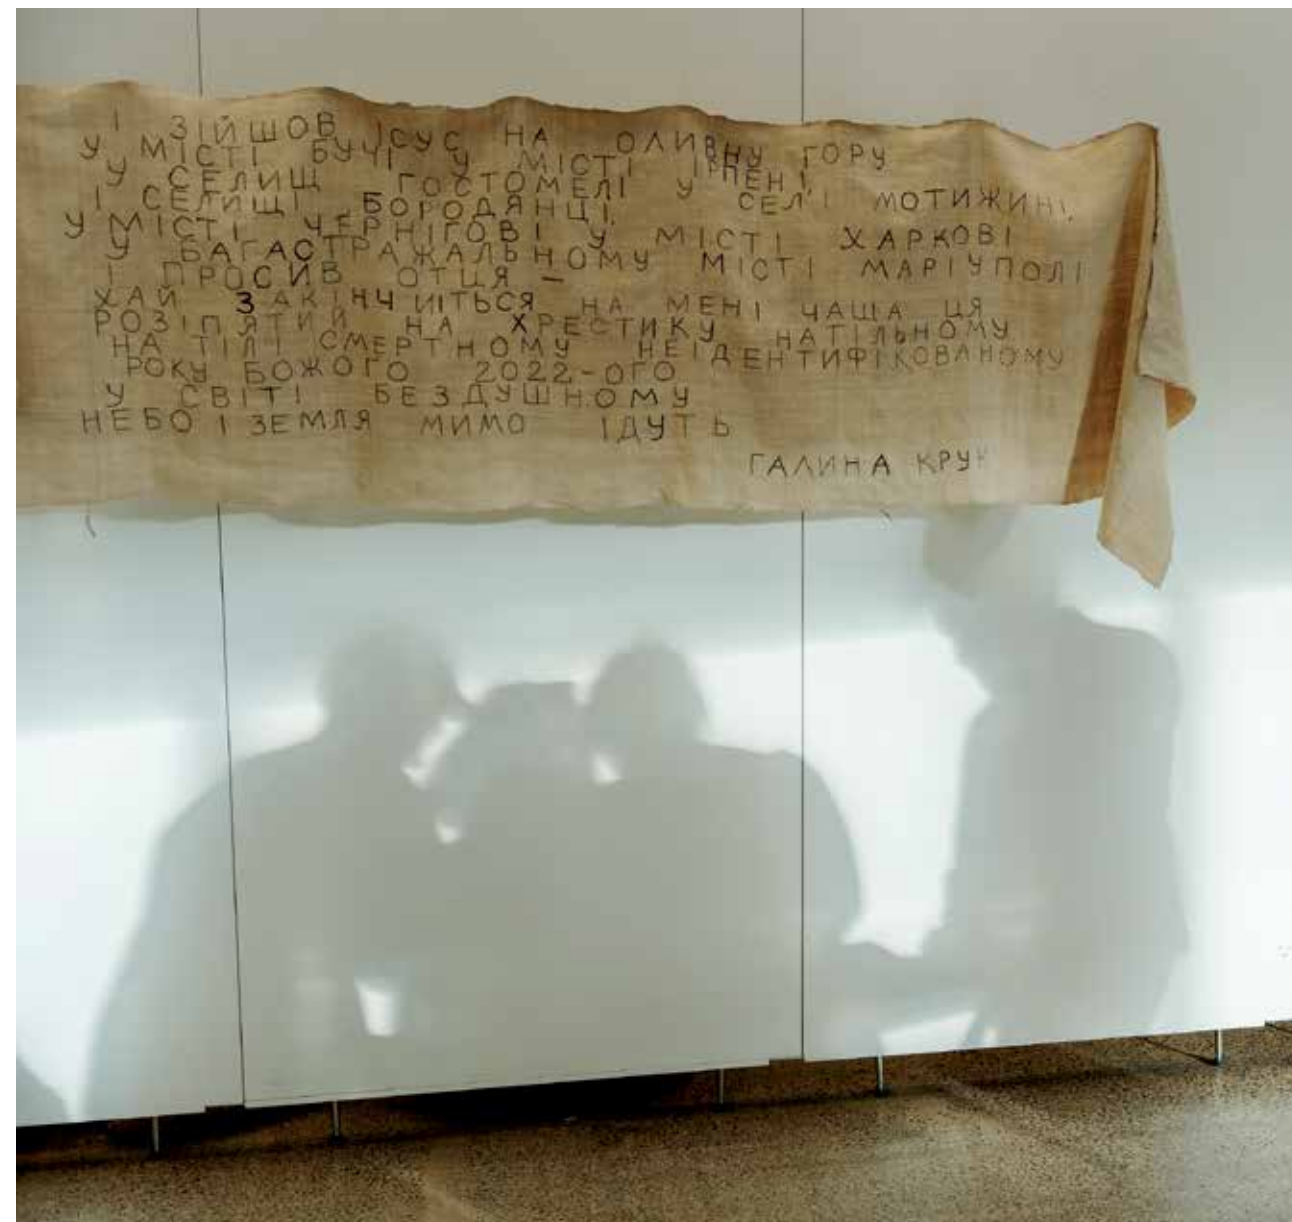 І ЗІЙШОВ ІСУС НА ОЛИВНУ ГОРУ
У МІСТІ БУЧІ У МІСТІ ІРПЕНІ,
У СЕЛИЩ ГОСТОМЕЛІ У СЕЛІ МОТИЖИНІ,
І СЕЛИЩІ БОРОДЯНЦІ,
У МІСТІ ЧЕРНІГОВІ У МІСТІ ХАРКОВІ
У БАГАСТРАЖАЛЬНОМУ МІСТІ МАРІУПОЛІ
І ПРОСИВ ОТЦЯ –
ХАЙ ЗАКІНЧИТЬСЯ НА МЕНІ ЧАША ЦЯ
РОЗІПЯТИЙ НА ХРЕСТИКУ НАТІЛЬНОМУ
НА ТІЛІ СМЕРТНОМУ НЕІДЕНТИФІКОВАНОМУ
РОКУ БОЖОГО 2022-ОГО
У СВІТІ БЕЗДУШНОМУ
НЕБО І ЗЕМЛЯ МИМО ІДУТЬ
ГАЛИНА КРУК